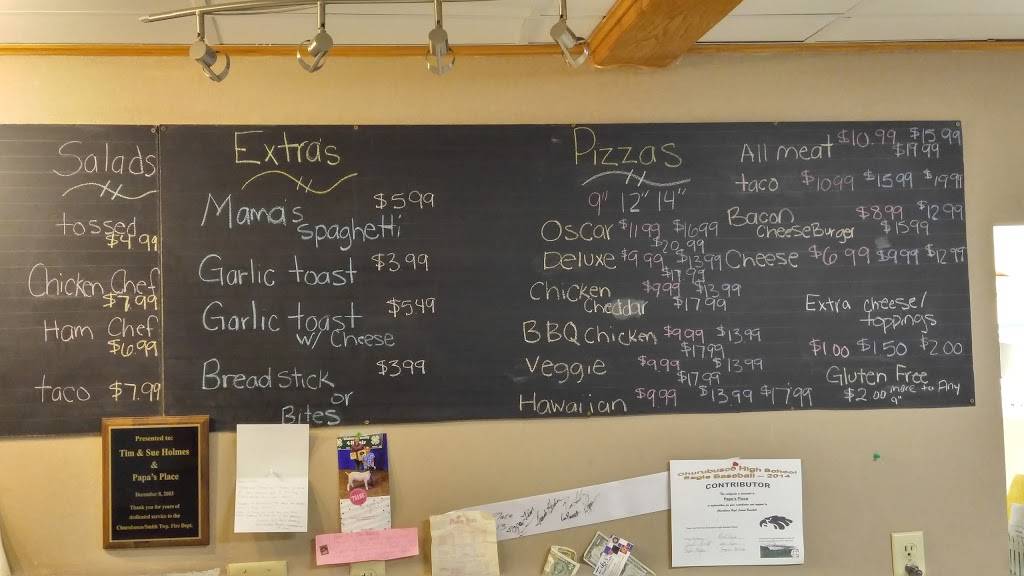 Salads
tossed
$4.99
Chicken Chef
$7.99
Ham Chef
$6.99
taco $7.99
Extras
Mama's $5.99
spaghetti
Garlic toast $3.99
Garlic toast $5.49
w/ Cheese
Breadstick $3.99
or
Bites
Pizzas
9" 12" 14"
Oscar $11.99 $16.99
$20.99
Deluxe $9.99 $13.99
$17.99
Chicken $9.99 $13.99
Cheddar $17.99
BBQ Chicken $9.99 $13.99
$17.99
Veggie $9.99 $13.99
$17.99
Hawaiian $9.99 $13.99 $17.99
All meat $10.99 $15.99
$17.99
taco $10.99 $15.99 $19.99
Bacon $8.99 $12.99
CheeseBurger $15.99
Cheese $6.99 $9.99 $12.99
Extra cheese/
toppings
$1.00 $1.50 $2.00
Gluten Free
$2.00 more to Any
9"
Presented to:
Tim & Sue Holmes
&
Papa's Place
December 8, 2003
Thank you for years of
dedicated service to the
Churubusco/Smith Twp. Fire Dept.
THANK
Churubusco High School
Eagle Baseball - 2014
CONTRIBUTOR
Papa's Place